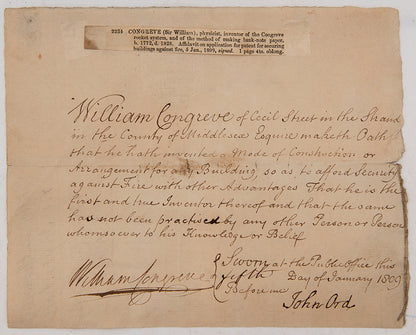 2234 CONGREVE (Sir William), physicist, inventor of the Congreve
rocket system, and of the method of making bank-note paper,
b. 1772, d. 1828. Affidavit on application for patent for securing
buildings against fire, 5 Jan., 1809, signed. 1 page 4to. oblong.
William Congreve of Cecil Street in the Strand
in the County of Middlesex Esquire maketh Oath
that he hath invented a Mode of Construction or
Arrangement for any Building, so as to afford Security
against Fire with other Advantages That he is the
first and true Inventor thereof and that the same
has not been practised by any other Person or Person
whomsoever to his Knowledge or Belief
William Congreve
Sworn at the Public Office this
fifth Day of January 1809
Before me
John Ord